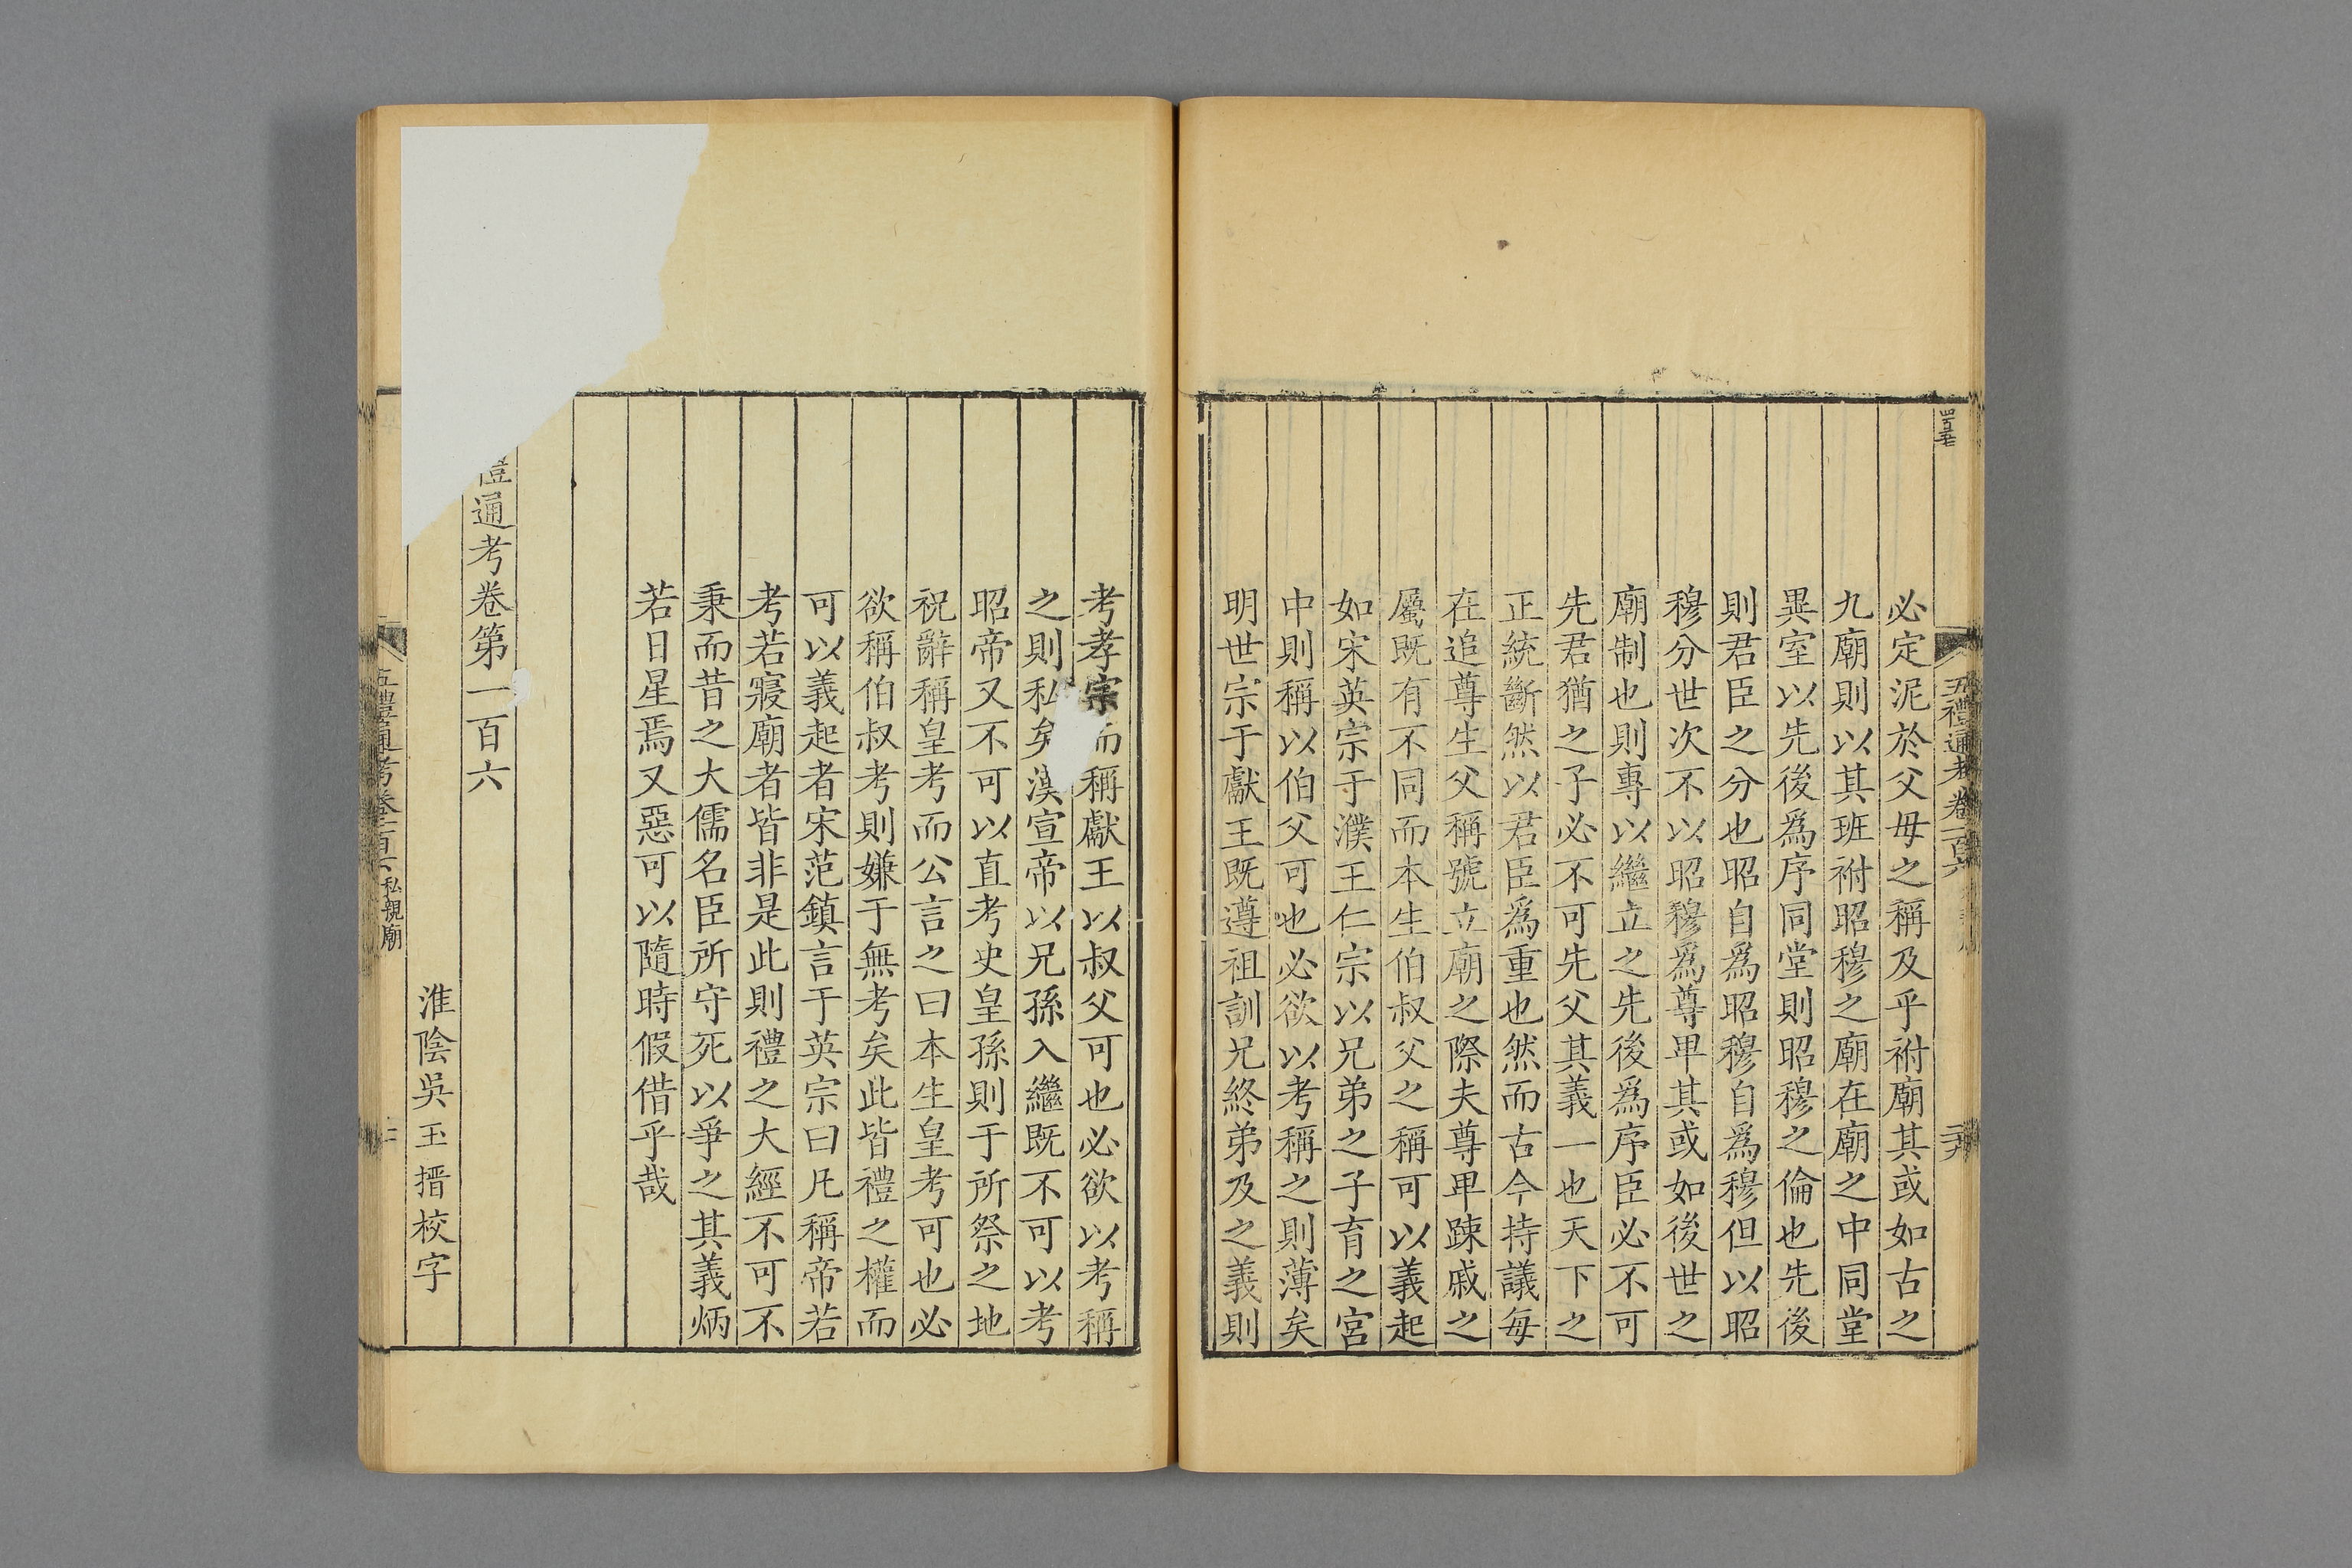 五禮通考卷一百六
必定泥於父母之稱及乎祔廟其或如古之
九廟則以其班祔昭穆之廟在廟之中同堂
異室以先後爲序同堂則昭穆之倫也先後
則君臣之分也昭自爲昭穆自爲穆但以昭
穆分世次不以昭穆爲尊畢其或如後世之
廟制也則專以繼立之先後爲序臣必不可
先君猶之子必不可先父其義一也天下之
正統斷然以君臣爲重也然而古今持議每
在追尊生父稱號立廟之際夫尊畢踈戚之
屬既有不同而本生伯叔父之稱可以義起
如宋英宗于濮王仁宗以兄弟之子育之宮
中則稱以伯父可也必欲以考稱之則薄矣
明世宗于獻王既遵祖訓兄終弟及之義則
考孝宗而稱獻王以叔父可也必欲以考稱
之則私矣漢宣帝以兄孫入繼既不可以考
昭帝又不可以直考史皇孫則于所祭之地
祝辭稱皇考而公言之曰本生皇考可也必
欲稱伯叔考則嫌于無考矣此皆禮之權而
可以義起者宋范鎮言于英宗曰凡稱帝若
考若寢廟者皆非是此則禮之大經不可不
秉而昔之大儒名臣所守死以爭之其義炳
若日星焉又惡可以隨時假借乎哉
通考卷第一百六
淮陰吳玉搢校字
五禮通考卷一百六 私親廟